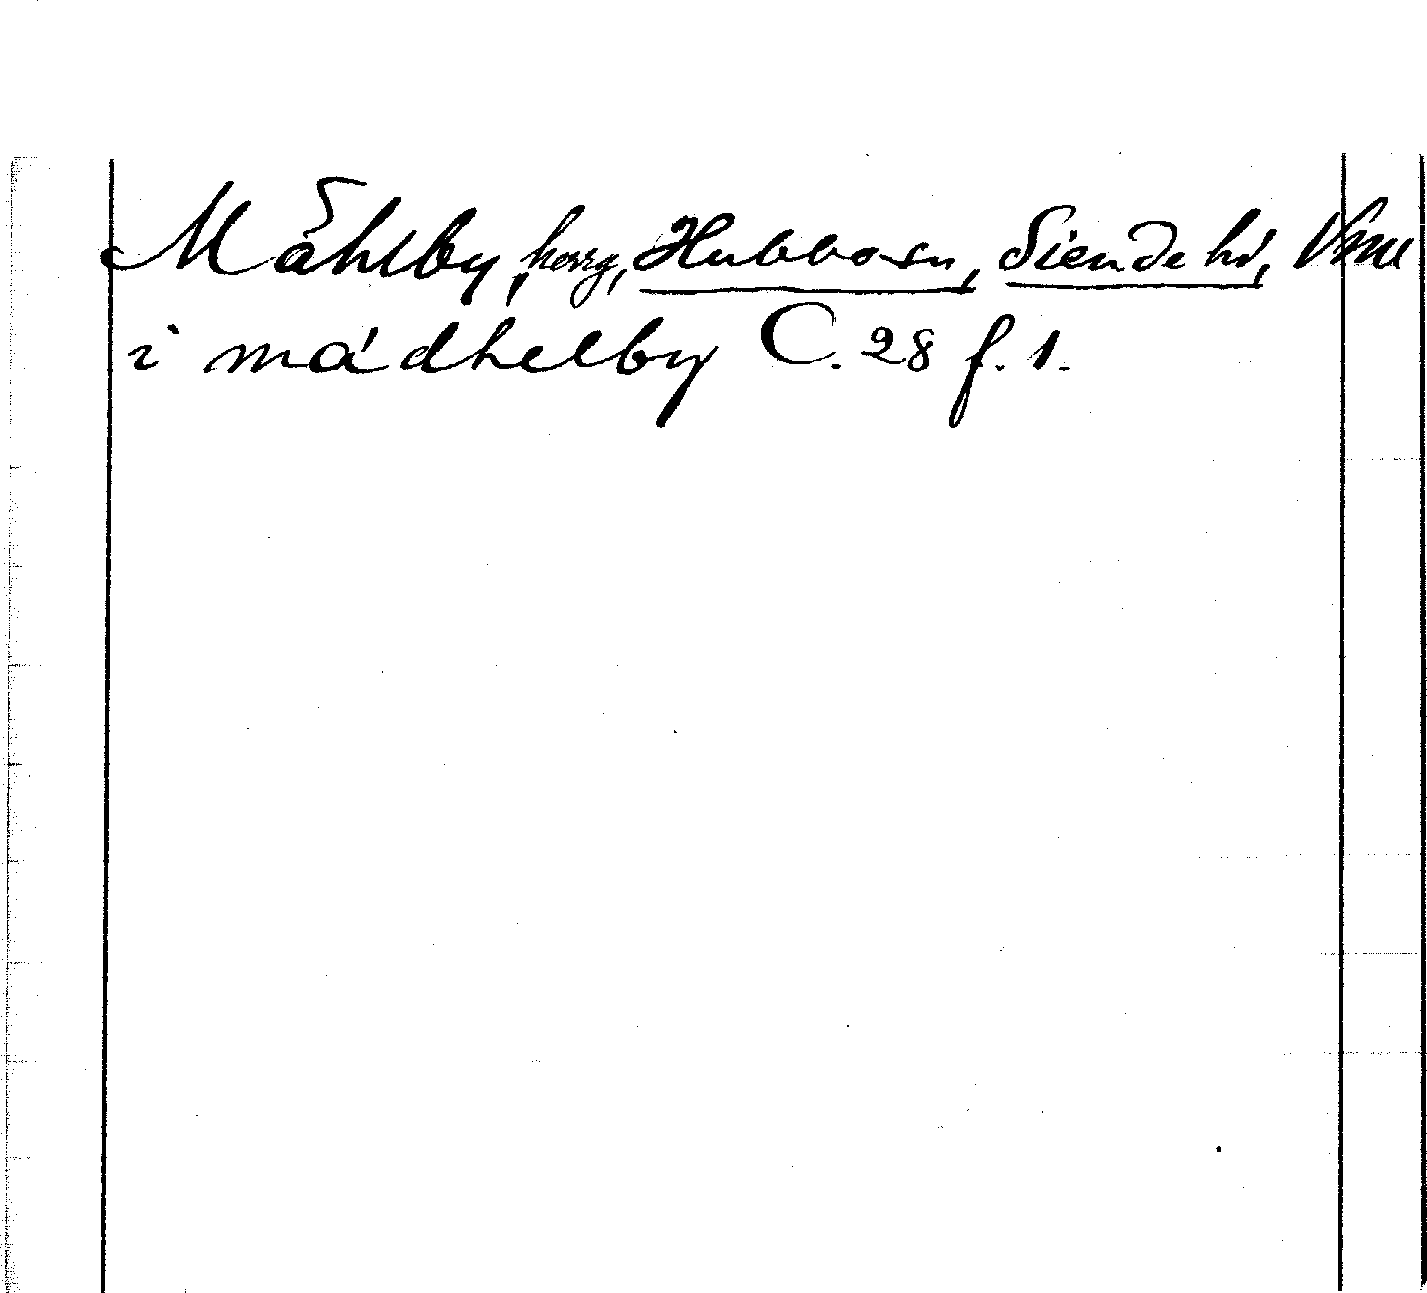 Måhlby, herrg, Hubbo sn, Siende hd, Vml
i mádhelby C. 28 f. 1.